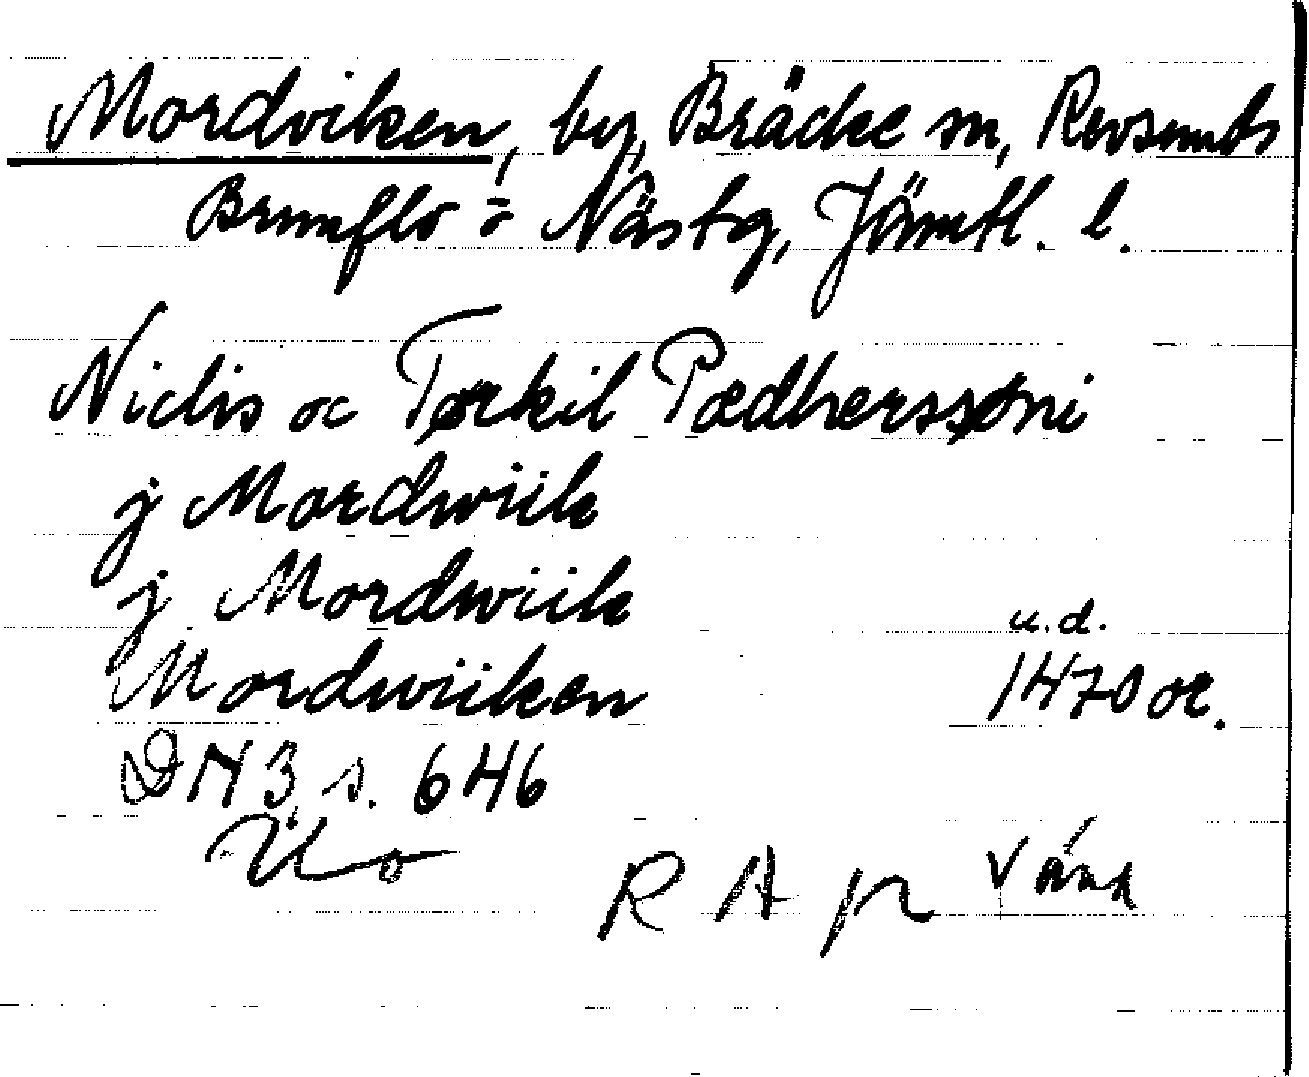 Mordviken, by, Bräcke sn, Revsunds
Brunflo o Nästg, Jämtl. l.
Niclis oc Tørkil Pædherssøni
j Mordwiik
j Mordwiik
u.d.
Mordwiiken 1470 or.
DN 3 s. 646
RA p